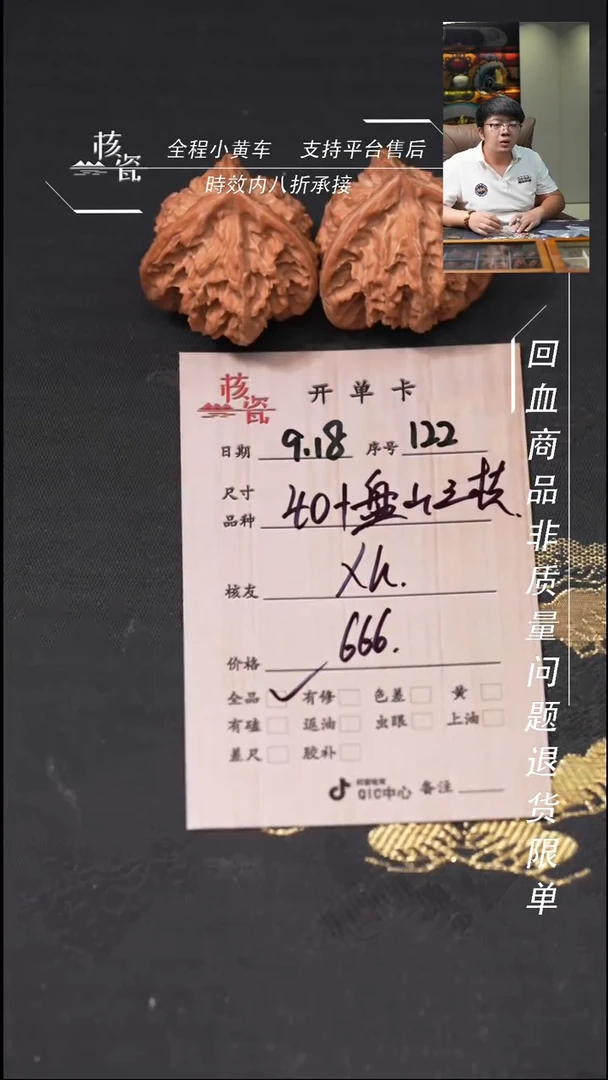 核瓷
全程小黄车 支持平台售后
時效内八折承接
回血商品非质量问题退货限单
核瓷
开单卡
日期 9.18 序号 122
尺寸
品种 40+盘山三棱.
核友 Xh.
价格 666.
全品 ✓ 有修 色差 黄
有磕 返油 虫眼 上油
差尺 胶补
QIC中心 备注